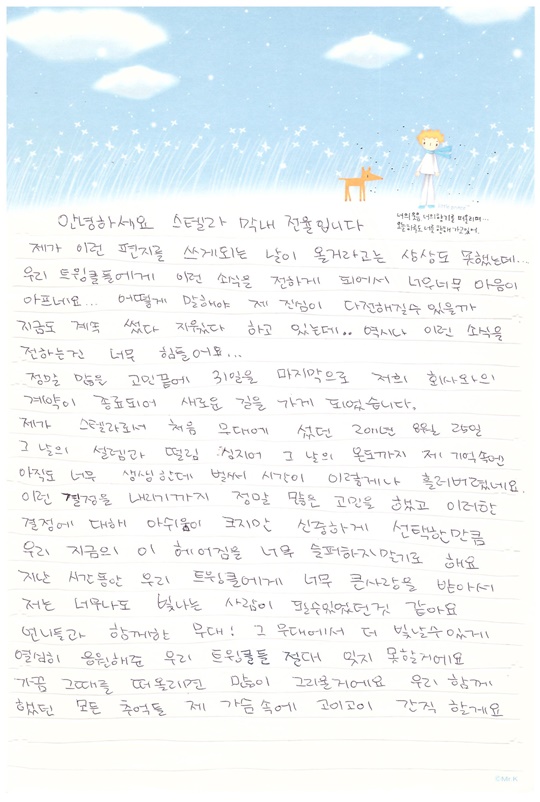 너의 꿈을 너의 향기를 떠올리며...
오늘 하루도 너를 향해 가고있어.
안녕하세요 스텔라 막내 전율입니다
제가 이런 편지를 쓰게되는 날이 올거라고는 상상도 못했는데...
우리 트윙클들에게 이런 소식을 전하게 되어서 너무너무 마음이
아프네요... 어떻게 말해야 제 진심이 다전해질수있을까
지금도 계속 썼다 지웠다 하고 있는데.. 역시나 이런 소식을
전하는건 너무 힘들어요...
정말 많은 고민끝에 31일을 마지막으로 저희 회사와의
계약이 종료되어 새로운 길을 가게 되었습니다.
제가 스텔라로서 처음 무대에 섰던 2011년 8월 25일
그 날의 설렘과 떨림 심지어 그 날의 온도까지 제 기억속엔
아직도 너무 생생한데 벌써 시간이 이렇게나 흘러버렸네요.
이런 결정을 내리기까지 정말 많은 고민을 했고 이러한
결정에 대해 아쉬움이 크지만 신중하게 선택한만큼
우리 지금의 이 헤어짐을 너무 슬퍼하지말기로 해요
지난 시간동안 우리 트윙클에게 너무 큰사랑을 받아서
저는 너무나도 빛나는 사람이 될수있었던것 같아요
언니들과 함께한 무대! 그 무대에서 더 빛날수있게
열심히 응원해준 우리 트윙클들 절대 잊지 못할거에요
가끔 그때를 떠올리면 많이 그리울거에요 우리 함께
했던 모든 추억들 제 가슴속에 고이고이 간직 할게요
©Mr.K